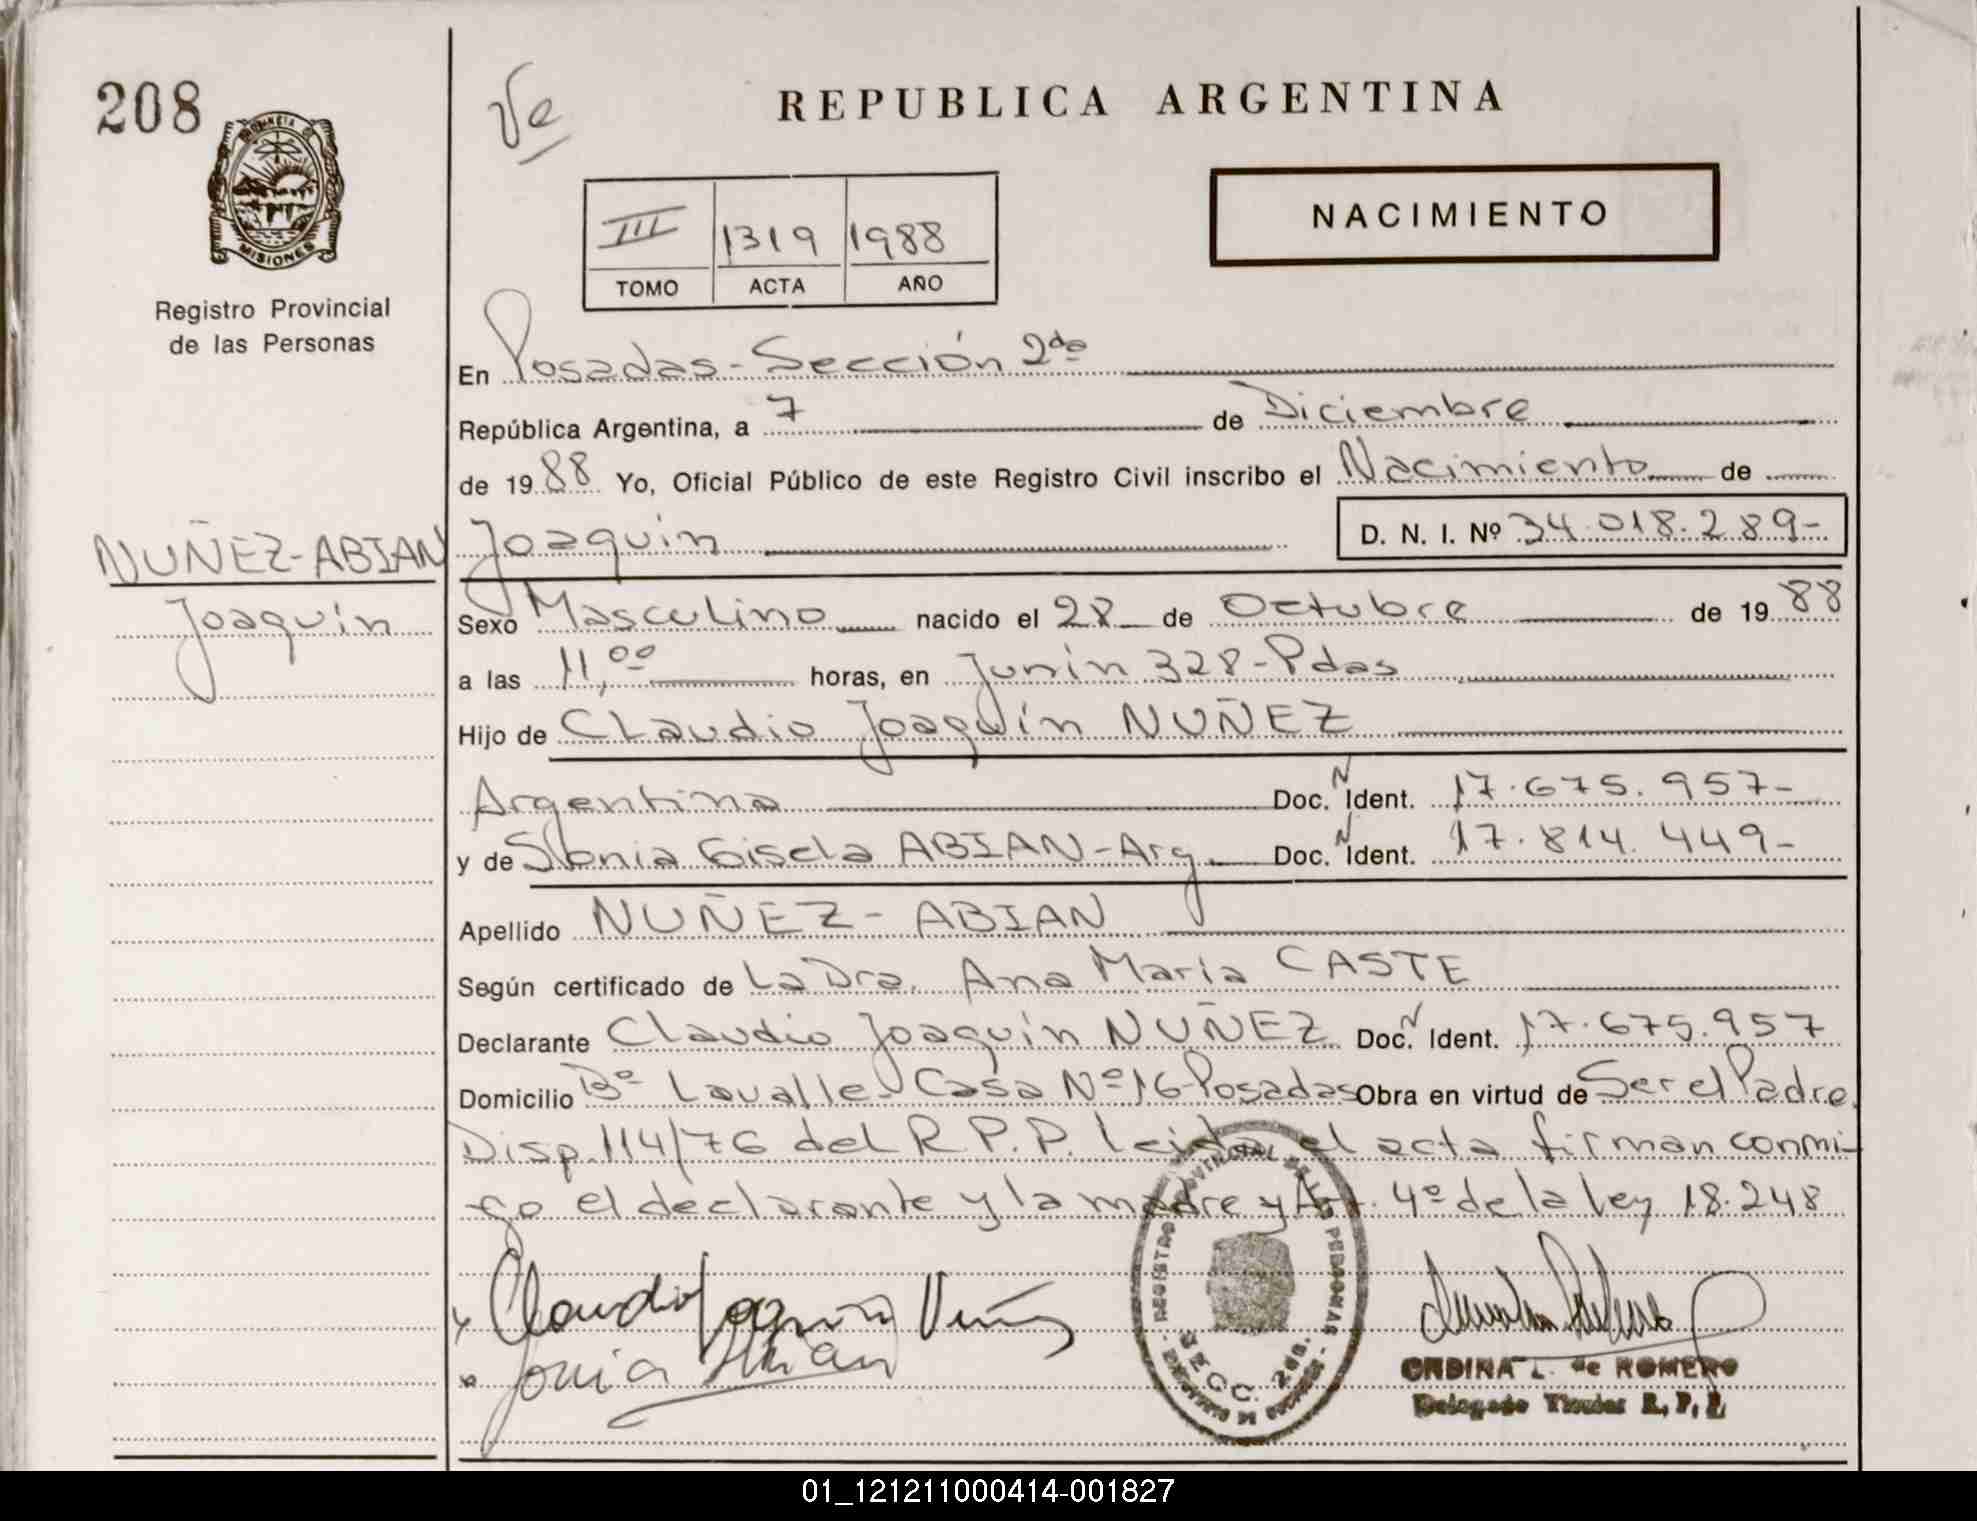 208
PROVINCIA DE
MISIONES
Registro Provincial
de las Personas
Ve
REPUBLICA ARGENTINA
III 1319 1988
TOMO ACTA AÑO
NACIMIENTO
En Posadas - Sección 2da
República Argentina, a 7 de Diciembre
de 1988 Yo, Oficial Público de este Registro Civil inscribo el Nacimiento de
NUÑEZ-ABIAN Joaquín D. N. I. Nº 34.018.289-
Joaquín
Sexo Masculino nacido el 28 de Octubre de 1988
a las 11,00 horas, en Junín 328-Pdas
Hijo de Claudio Joaquín NUÑEZ
Argentino Doc. N Ident. 17.675.957-
y de Sonia Gisela ABIAN-Arg. Doc. N Ident. 17.814.449-
Apellido NUÑEZ - ABIAN
Según certificado de La Dra. Ana María CASTE
Declarante Claudio Joaquín NUÑEZ Doc. N Ident. 17.675.957
Domicilio Bº Lavalle Casa Nº 16-Posadas Obra en virtud de Ser el Padre.
Disp. 114/76 del R.P.P. leida el acta firman conmi-
go el declarante y la madre y Art. 4º de la ley 18.248
Claudio Joaquín Núñez
Sonia Abian
REGISTRO PROVINCIAL DE LAS PERSONAS
SECC. 2da.
ONDINA L. de ROMERO
Delegado Titular R. P. P.
01_121211000414-001827